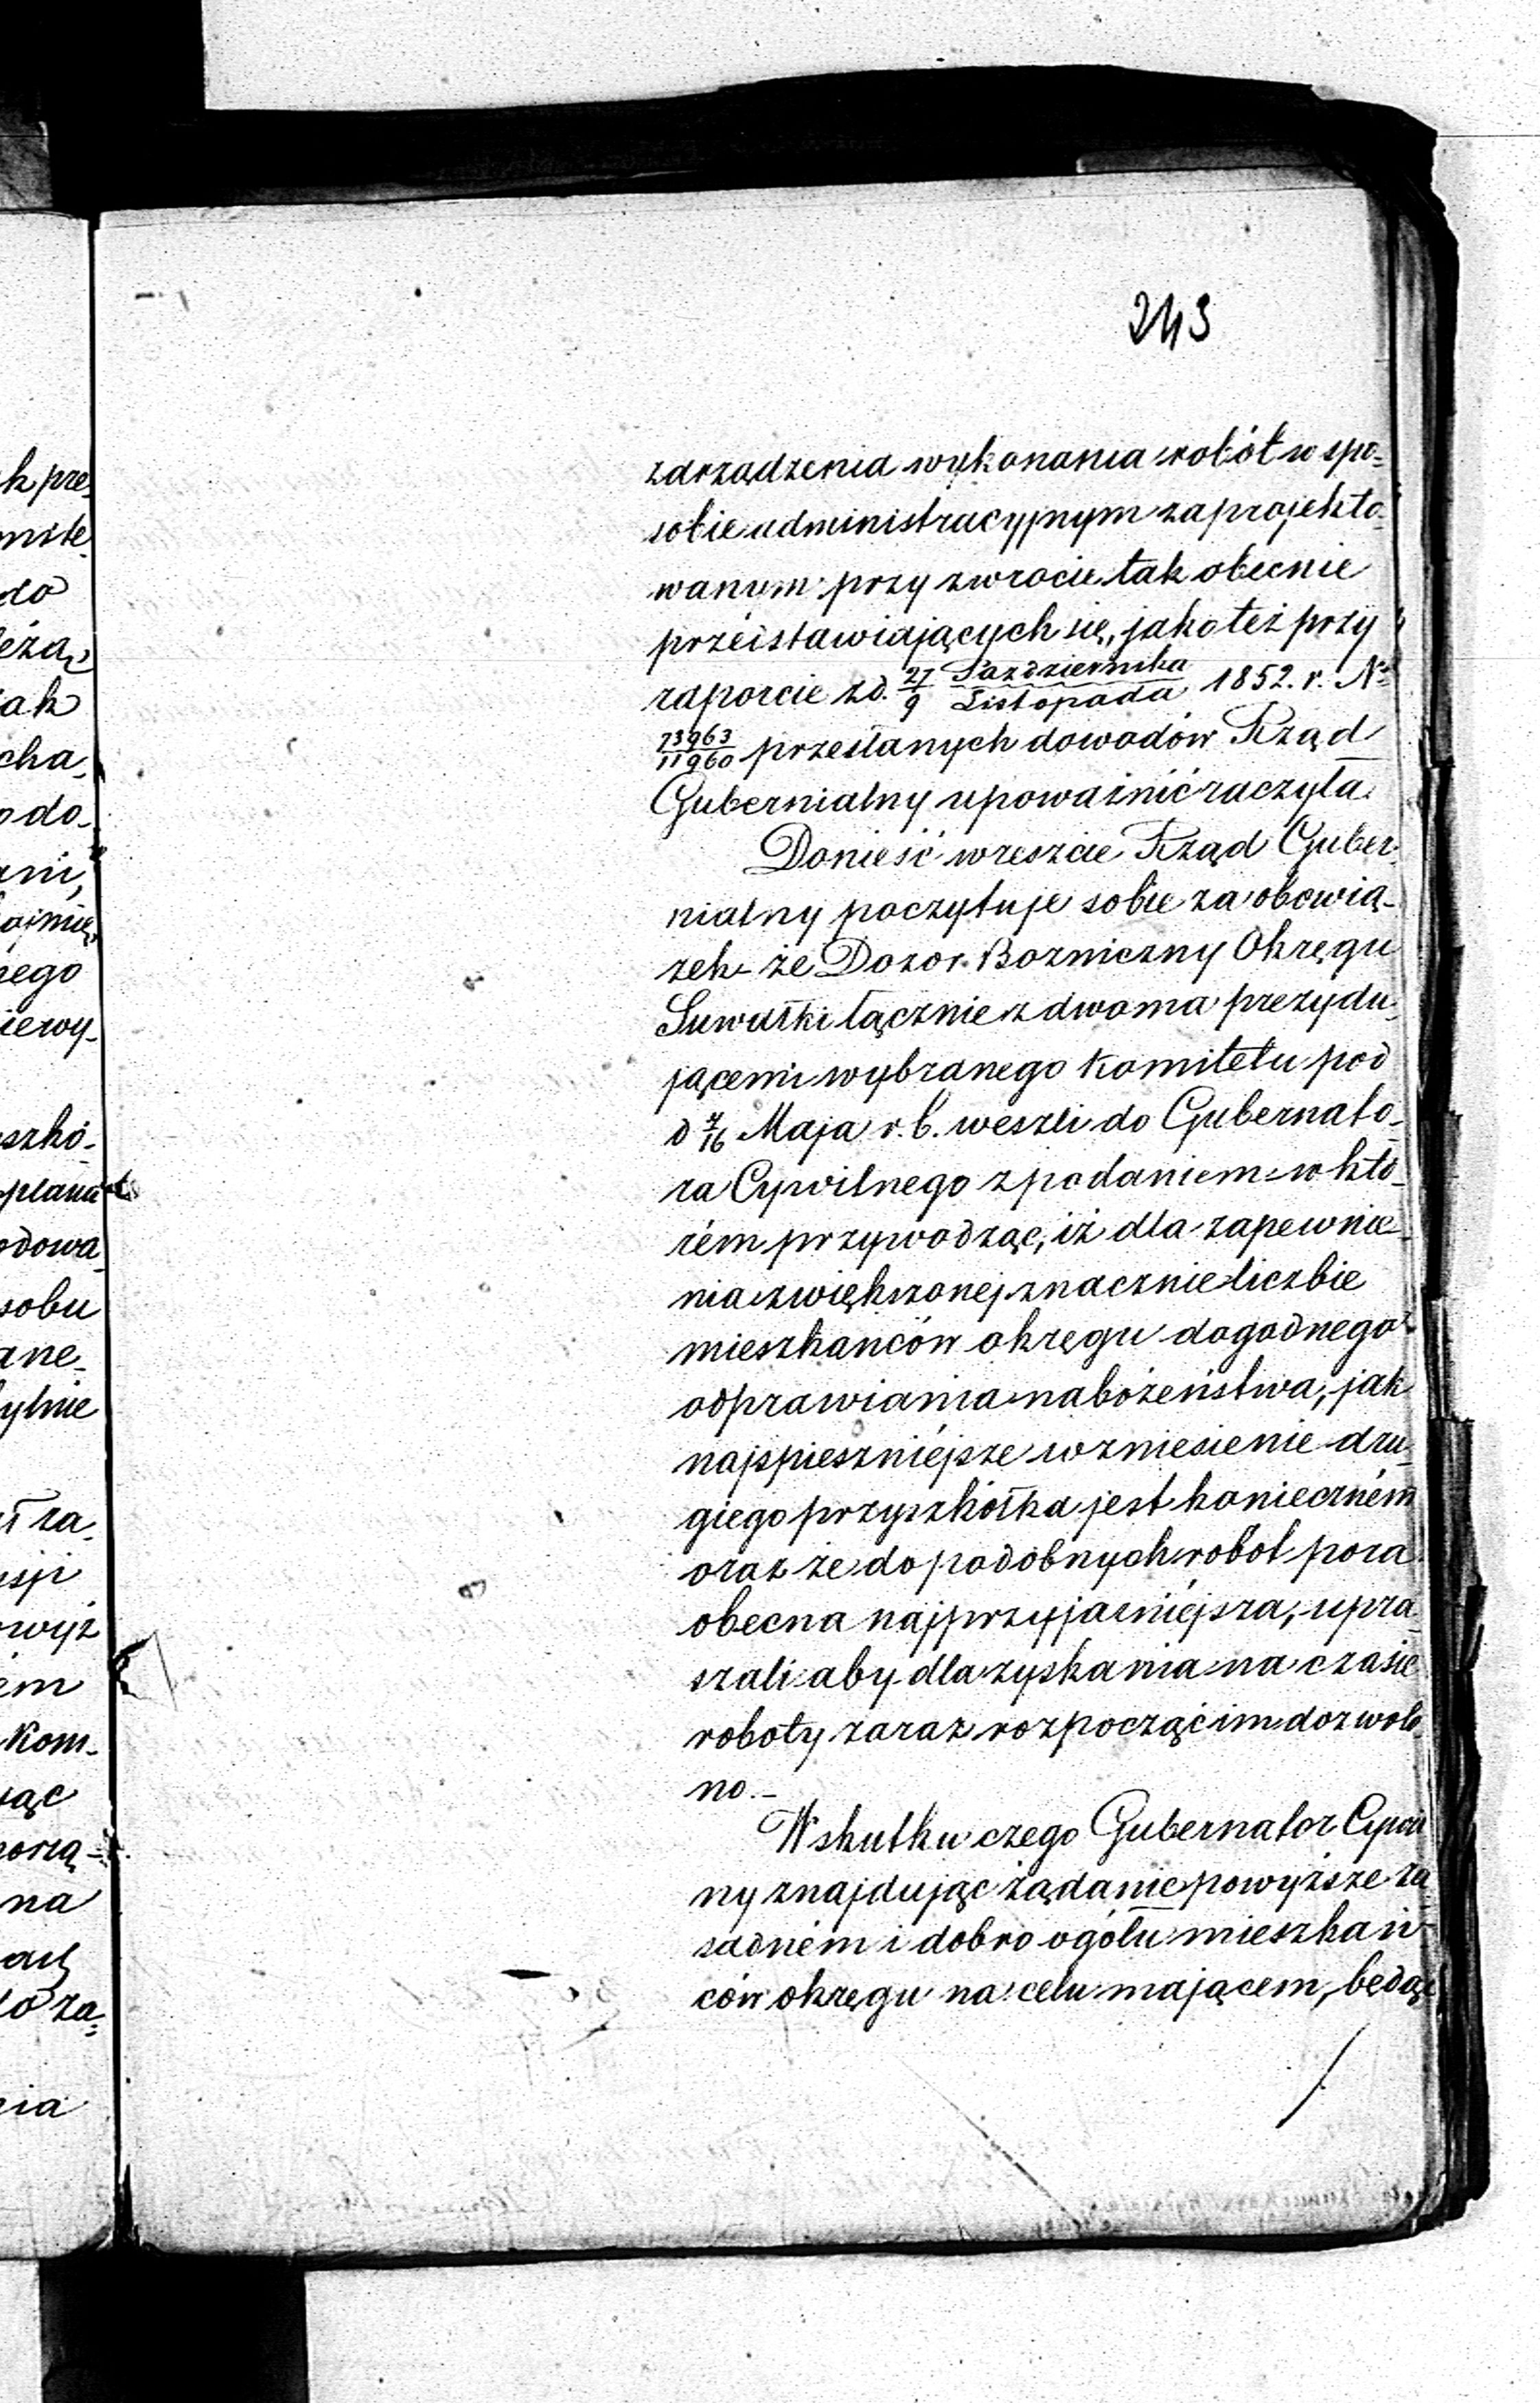 243
zarządzenia wykonania robót w spo-
sobie administracyjnym zaprojekto-
wanym przy zwrocie tak obecnie
przedstawiających się, jako też przy
raporcie z d. 27/9 Października/Listopada 1852. r. No
73963/11960 przesłanych dowodów Rząd
Gubernialny upoważnić raczyła.
Donieść wreszcie Rząd Guber-
nialny poczytuje sobie za obowią-
zek że Dozór Bozniczny Okręgu
Suwałki łącznie z dwoma prezydu-
jącemi wybranego Komitetu pod
d 4/16 Maja r. b. weszli do Gubernato-
ra Cywilnego z podaniem w któ-
rém przywodząc, iż dla zapewnie-
nia zwiększonej znacznie liczbie
mieszkańców okręgu dogodnego
odprawiania nabożeństwa, jak
najspieszniéjsze wzniesienie dru-
giego przyszkółka jest konieczném
oraz że do podobnych robot pora
obecna najprzyjaźniéjsza, upra-
szali aby dla zyskania na czasie
roboty zaraz rozpocząć im dozwolo-
no.-
W skutku czego Gubernator Cywil
ny znajdując żądanie powyższe za
sadném i dobro ogółu mieszkań-
ców okręgu na celu mającem, będąc
k pre-
do
jak
cha-
do-
ani,
nego
iewy-
szkó-
plana
odowa-
sobu
ane-
ytnie
za-
sji
owyż
ém
Kom-
na
za-
nia